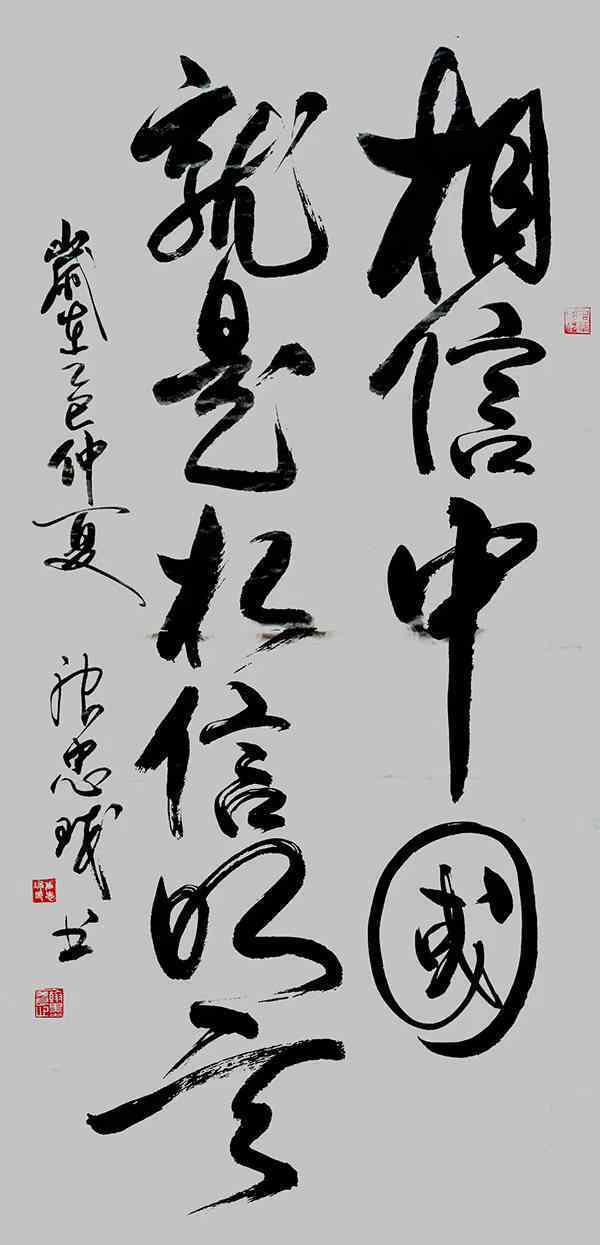 相信中國
就是相信明天
歲在乙巳仲夏 張忠 書